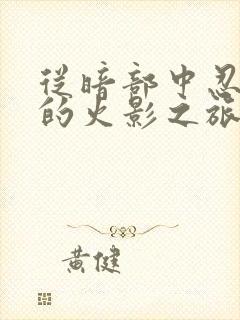 从暗部中忍
的火影之旅
黄健